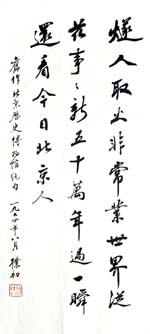 燧人取火非常業世界從
茲事〻新五十萬年過一瞬
還看今日北京人
舊作北京歷史博物館絕句
年八月 樸初